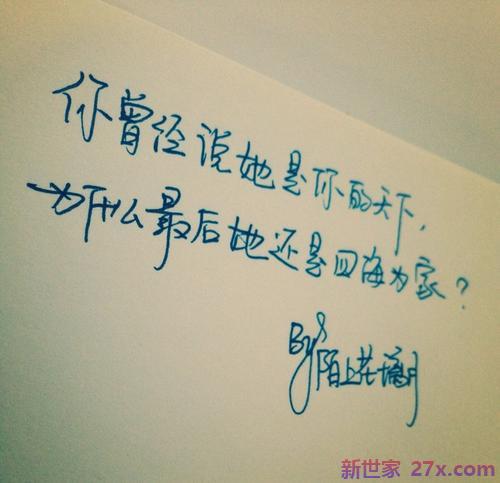 你曾经说她是你的天下，
为什么最后她还是四海为家？
By 陌上花
新世家 27x.com